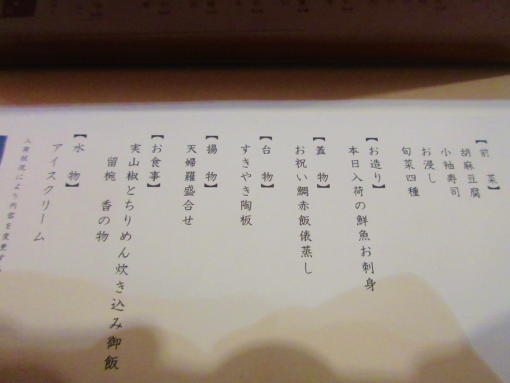 【前菜】
胡麻豆腐
小袖寿司
お浸し
旬菜四種
【お造り】
本日入荷の鮮魚お刺身
【蓋物】
お祝い鯛赤飯俵蒸し
【台物】
すきやき陶板
【揚物】
天婦羅盛合せ
【お食事】
実山椒とちりめん炊き込み御飯
留椀 香の物
【水物】
アイスクリーム
入荷状況により内容を変更する